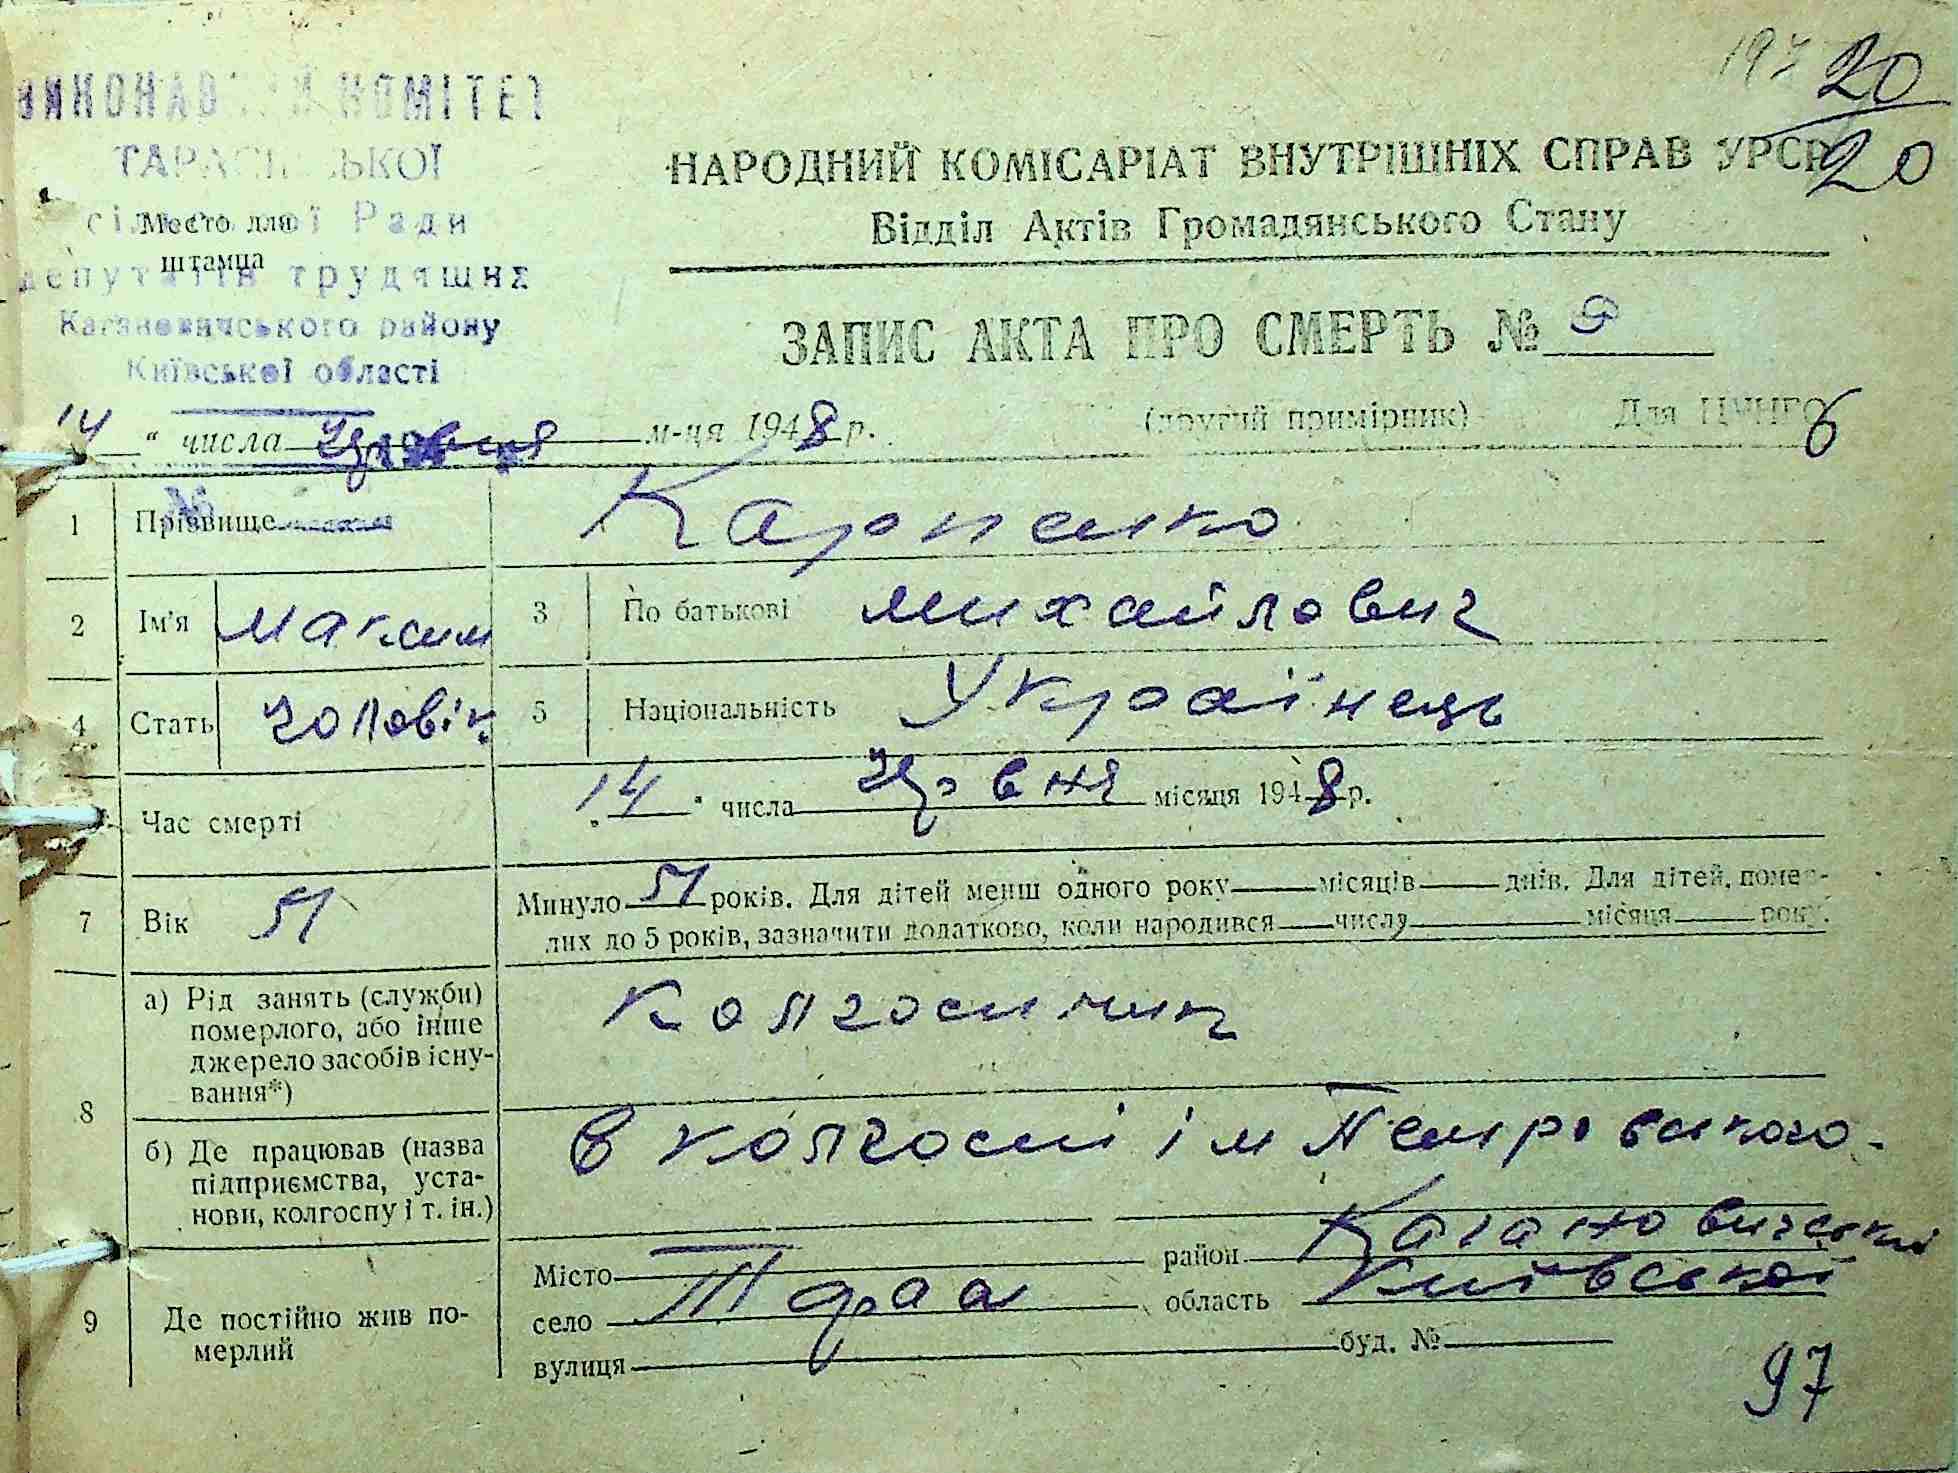 197 20/20
ВИКОНАВЧИЙ КОМІТЕТ
ТАРАСІВСЬКОЇ
сільської Ради
депутатів трудящих
Кагановичського району
Київської області
Место для
штампа
НАРОДНИЙ КОМІСАРІАТ ВНУТРІШНІХ СПРАВ УРСР
Відділ Актів Громадянського Стану
ЗАПИС АКТА ПРО СМЕРТЬ № 9
14 " числа м-ця 1948 р. (другий примірник) Для ЦУНГО 6
1 Прізвище Карпенко
2 Ім'я Максим 3 По батькові Михайлович
4 Стать Чоловік 5 Національність Українець
Час смерті 14 " числа Чрвня місяця 1948 р.
7 Вік 51 Минуло 51 років. Для дітей менш одного року місяців днів. Для дітей, помер-
лих до 5 років, зазначити додатково, коли народився числа місяця року.
8 а) Рід занять (служби)
померлого, або інше
джерело засобів існу-
вання*)
Колгоспник
б) Де працював (назва
підприємства, уста-
нови, колгоспу і т. ін.)
в колгоспі ім Петровського.
9 Де постійно жив по-
мерлий
Місто район Кагановичський
село область Київської
вулиця буд. №
97